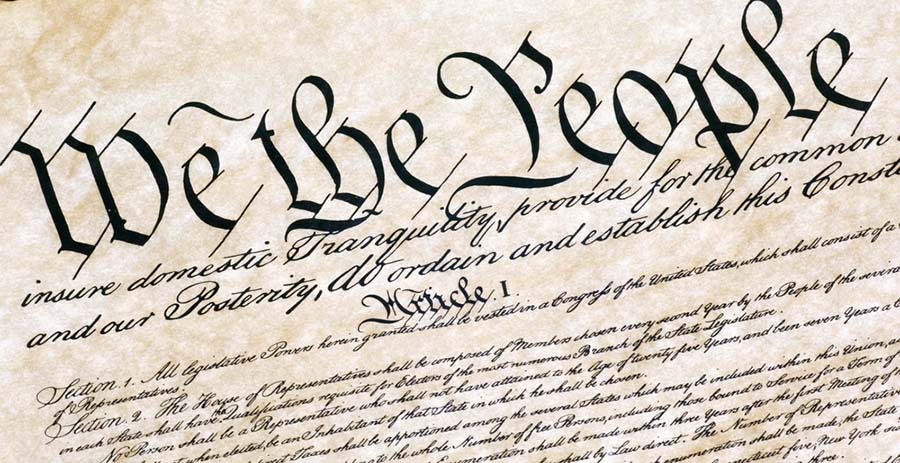 We the People
insure domestic Tranquility, provide for the common
and our Posterity, do ordain and establish this Const
Article. I.
Section. 1. All legislative Powers herein granted shall be vested in a Congress of the United States, which shall consist of a
of Representatives.
Section. 2. The House of Representatives shall be composed of Members chosen every second Year by the People of the several
in each State shall have the Qualifications requisite for Electors of the most numerous Branch of the State Legislature.
No Person shall be a Representative who shall not have attained to the Age of twenty five Years, and been seven Years a C
when elected, be an Inhabitant of that State in which he shall be chosen.
Taxes shall be apportioned among the several States which may be included within this Union, a
to the whole Number of free Persons, including those bound to Service for a Term of
Enumeration shall be made within three Years after the first Meeting of
shall by Law direct. The Number of Representative
enumeration shall be made, the State
necticut five, New York
three.